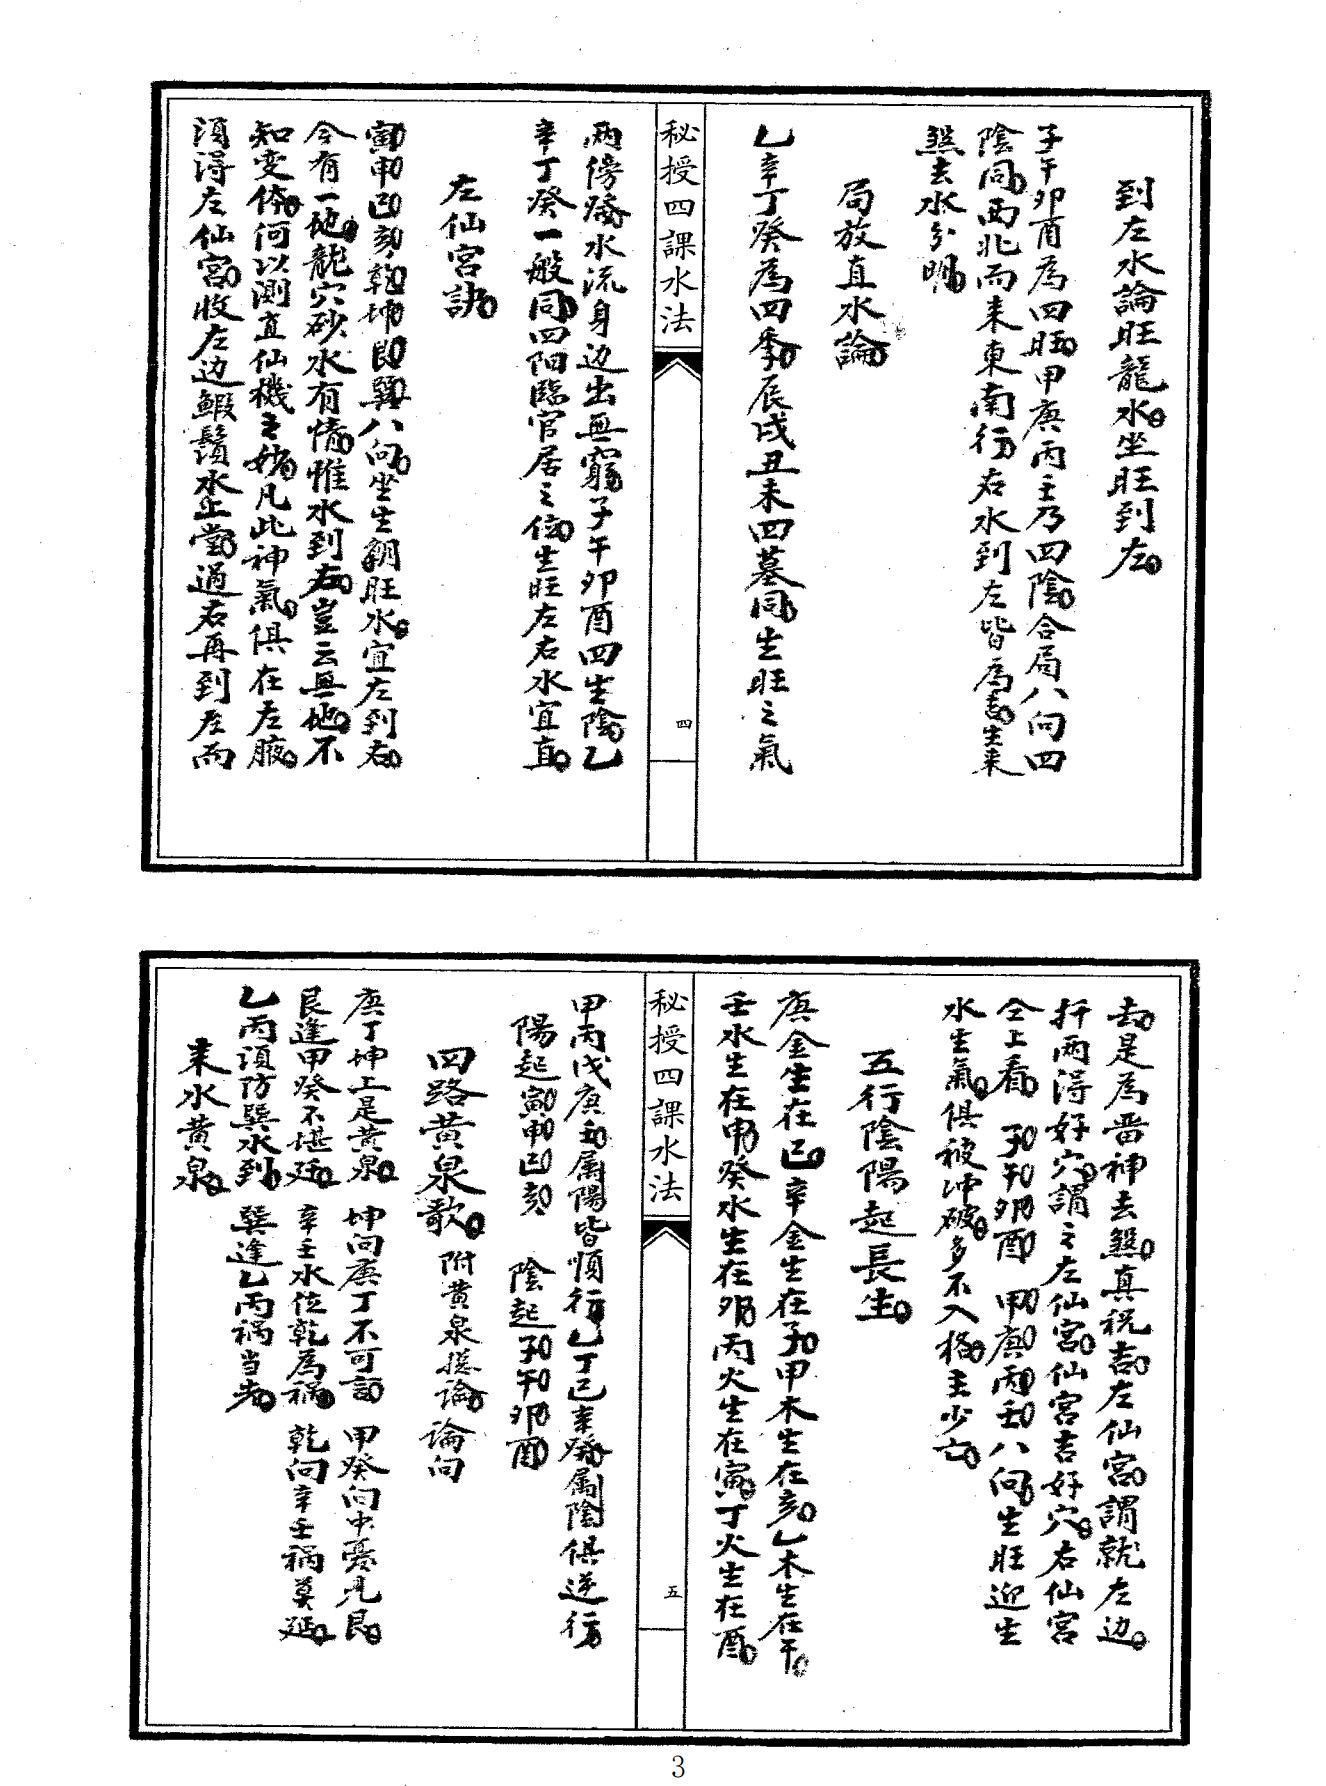 到左水論旺龍水坐旺到左
子午卯酉為四旺甲庚丙壬乃四陰合局八向四
陰同西北而来東南行右水到左皆為吉生来
煞去水分明
局放直水論
乙辛丁癸為四季辰戌丑未四墓同生旺之氣
秘授四課水法
四
兩傍發水流身边出無窮子午卯酉四生陰乙
辛丁癸一般同四陌臨官居之位生旺左右水宜直
左仙宮訣
寅申巳亥乾坤艮巽八向坐生朝旺水宜左到右
今有一地龍穴砂水有情惟水到右豈云無地不
知变体何以测直仙機之妙凡此神氣俱在左腋
須得左仙宮收左边鰕鬚水上堂過右再到左而
去是為晋神去煞真祝吉左仙宮謂就左边
扦两得好穴謂之左仙宮仙宮吉好穴右仙宮
仝上看 子午卯酉 甲庚丙壬八向生旺迎生
水生氣俱被冲破多不入格主少亡
五行陰陽起長生
庚金生在巳辛金生在子甲木生在亥乙木生在午
壬水生在申癸水生在卯丙火生在寅丁火生在酉
秘授四課水法
五
甲丙戊庚壬属陽皆順行乙丁己辛癸属陰俱逆行
陽起寅申巳亥 陰起子午卯酉
四路黄泉歌 附黄泉总論 论向
庚丁坤上是黄泉 坤向庚丁不可言 甲癸向中憂見艮
艮逢甲癸不堪廷 辛壬水位乾為禍 乾向辛壬祸莫延
乙丙須防巽水到 巽逢乙丙祸当先
来水黄泉
3